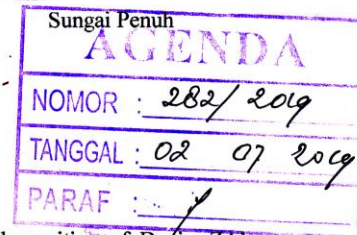 Sungai Penuh
AGENDA
NOMOR : 282/ 2019
TANGGAL : 02 07 2019
PARAF :